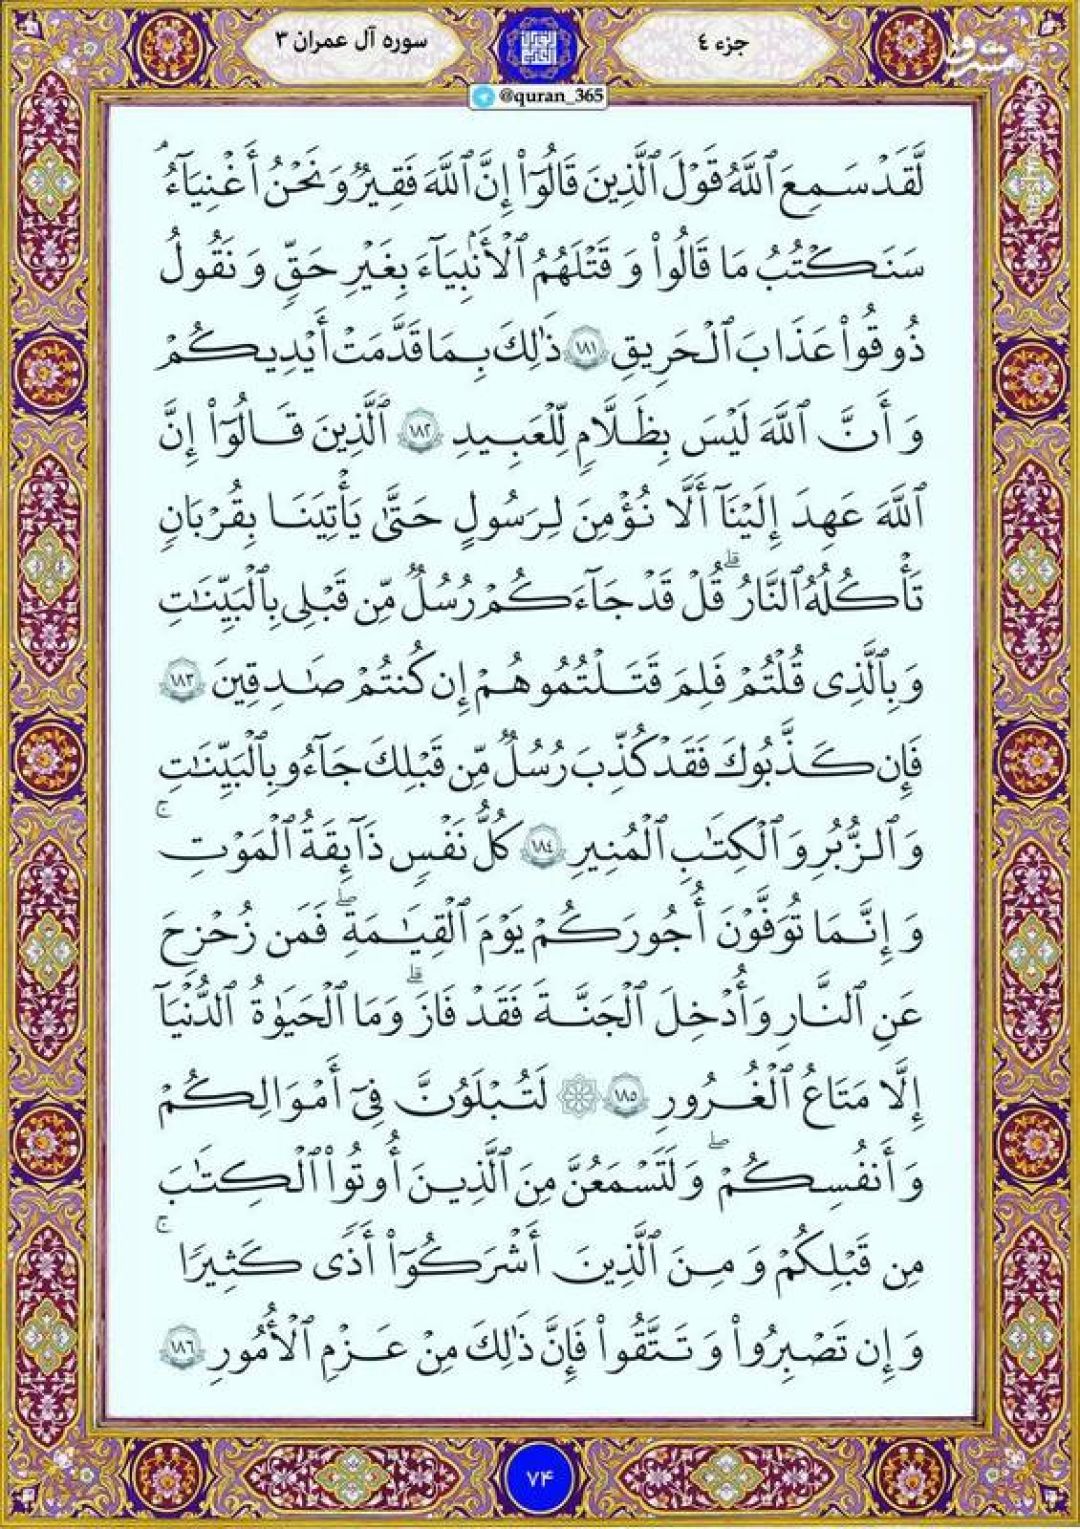 جزء ٤
سوره آل عمران ٣
@quran_365
مشرق
لَّقَدْ سَمِعَ ٱللَّهُ قَوْلَ ٱلَّذِينَ قَالُوٓا۟ إِنَّ ٱللَّهَ فَقِيرٌ وَنَحْنُ أَغْنِيَآءُ ۘ
سَنَكْتُبُ مَا قَالُوا۟ وَقَتْلَهُمُ ٱلْأَنۢبِيَآءَ بِغَيْرِ حَقٍّ وَنَقُولُ
ذُوقُوا۟ عَذَابَ ٱلْحَرِيقِ ١٨١ ذَٰلِكَ بِمَا قَدَّمَتْ أَيْدِيكُمْ
وَأَنَّ ٱللَّهَ لَيْسَ بِظَلَّامٍ لِّلْعَبِيدِ ١٨٢ ٱلَّذِينَ قَالُوٓا۟ إِنَّ
ٱللَّهَ عَهِدَ إِلَيْنَآ أَلَّا نُؤْمِنَ لِرَسُولٍ حَتَّىٰ يَأْتِيَنَا بِقُرْبَانٍ
تَأْكُلُهُ ٱلنَّارُ ۗ قُلْ قَدْ جَآءَكُمْ رُسُلٌ مِّن قَبْلِى بِٱلْبَيِّنَـٰتِ
وَبِٱلَّذِى قُلْتُمْ فَلِمَ قَتَلْتُمُوهُمْ إِن كُنتُمْ صَـٰدِقِينَ ١٨٣
فَإِن كَذَّبُوكَ فَقَدْ كُذِّبَ رُسُلٌ مِّن قَبْلِكَ جَآءُو بِٱلْبَيِّنَـٰتِ
وَٱلزُّبُرِ وَٱلْكِتَـٰبِ ٱلْمُنِيرِ ١٨٤ كُلُّ نَفْسٍ ذَآئِقَةُ ٱلْمَوْتِ ۗ
وَإِنَّمَا تُوَفَّوْنَ أُجُورَكُمْ يَوْمَ ٱلْقِيَـٰمَةِ ۖ فَمَن زُحْزِحَ
عَنِ ٱلنَّارِ وَأُدْخِلَ ٱلْجَنَّةَ فَقَدْ فَازَ ۗ وَمَا ٱلْحَيَوٰةُ ٱلدُّنْيَآ
إِلَّا مَتَاعُ ٱلْغُرُورِ ١٨٥ ۞ لَتُبْلَوُنَّ فِىٓ أَمْوَالِكُمْ
وَأَنفُسِكُمْ ۖ وَلَتَسْمَعُنَّ مِنَ ٱلَّذِينَ أُوتُوا۟ ٱلْكِتَـٰبَ
مِن قَبْلِكُمْ وَمِنَ ٱلَّذِينَ أَشْرَكُوٓا۟ أَذًى كَثِيرًا ۚ
وَإِن تَصْبِرُوا۟ وَتَتَّقُوا۟ فَإِنَّ ذَٰلِكَ مِنْ عَزْمِ ٱلْأُمُورِ ١٨٦
٧۴